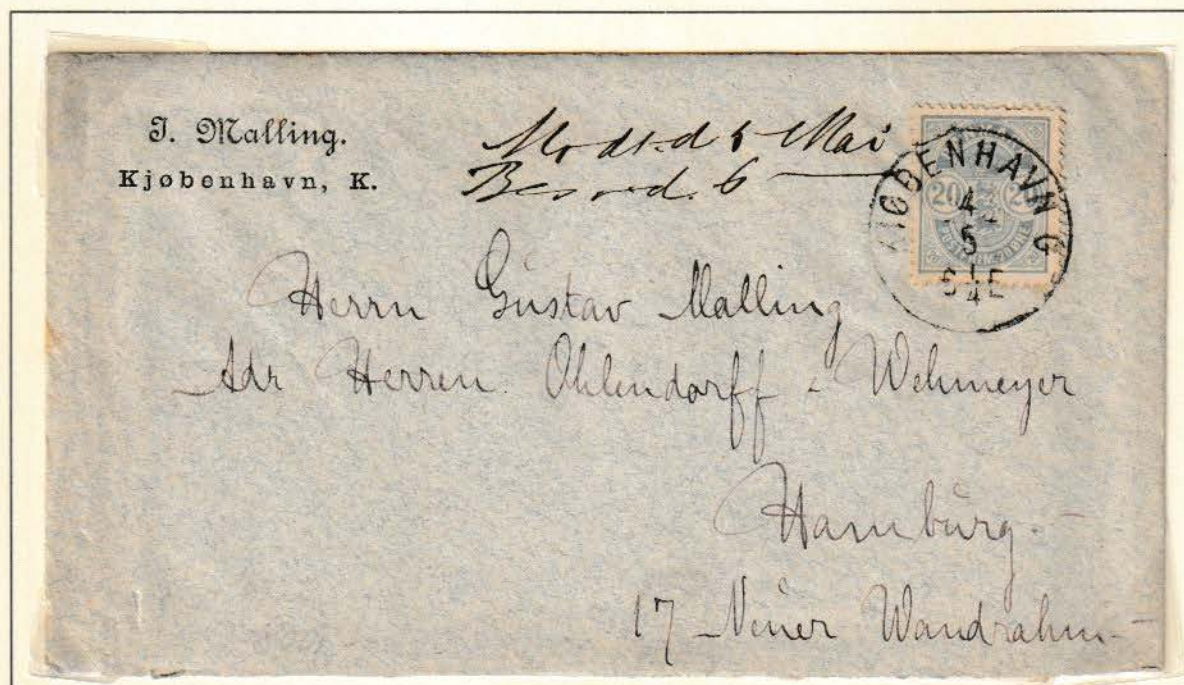 J. Malling.
Kjøbenhavn, K.
Modt. d 5 Mai
Besvd. 6
KJØBENHAVN
4
5
20 20
Herrn Gustav Malling
Adr Herren Ohlendorff & Wehmeyer
Hamburg.
17 Neuer Wandrahm